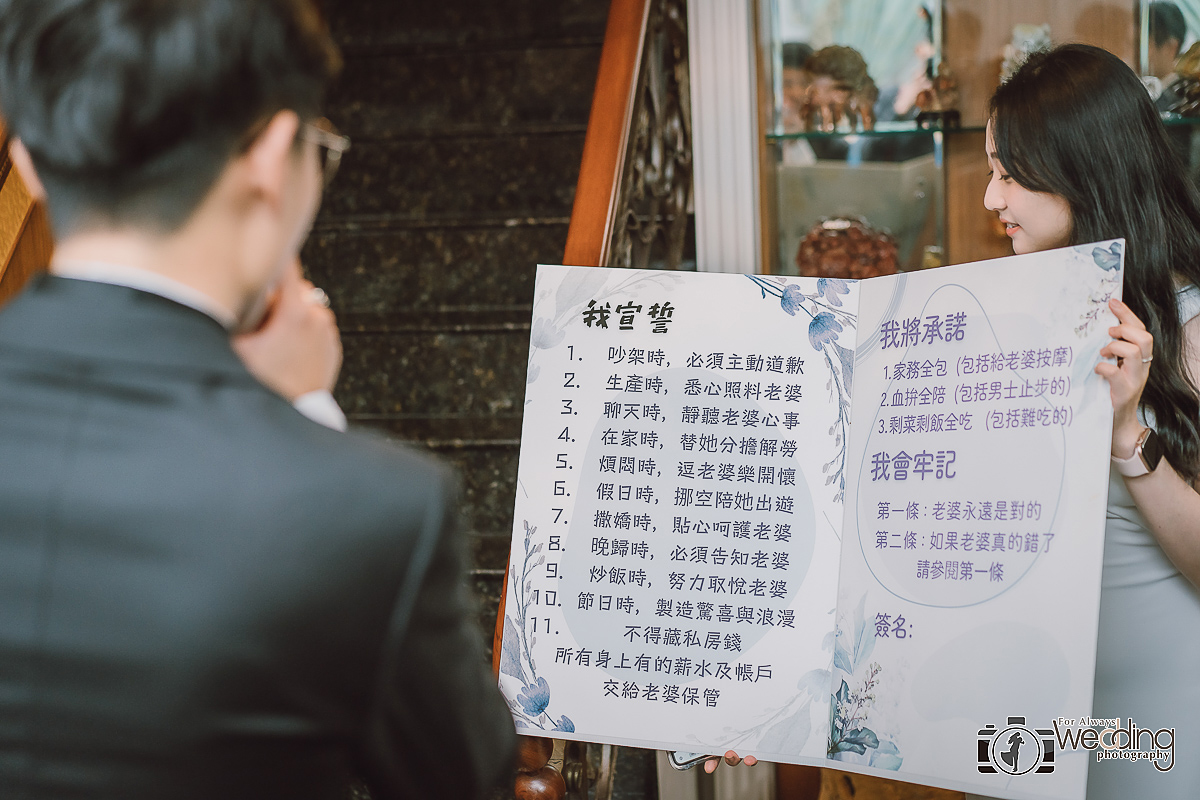 我宣誓
1. 吵架時，必須主動道歉
2. 生產時，悉心照料老婆
3. 聊天時，靜聽老婆心事
4. 在家時，替她分擔解勞
5. 煩悶時，逗老婆樂開懷
6. 假日時，挪空陪她出遊
7. 撒嬌時，貼心呵護老婆
8. 晚歸時，必須告知老婆
9. 炒飯時，努力取悅老婆
10. 節日時，製造驚喜與浪漫
11. 不得藏私房錢
所有身上有的薪水及帳戶
交給老婆保管
我將承諾
1.家務全包（包括給老婆按摩）
2.血拚全陪（包括男士止步的）
3.剩菜剩飯全吃（包括難吃的）
我會牢記
第一條：老婆永遠是對的
第二條：如果老婆真的錯了
請參閱第一條
簽名:
For Always
Wedding
photography